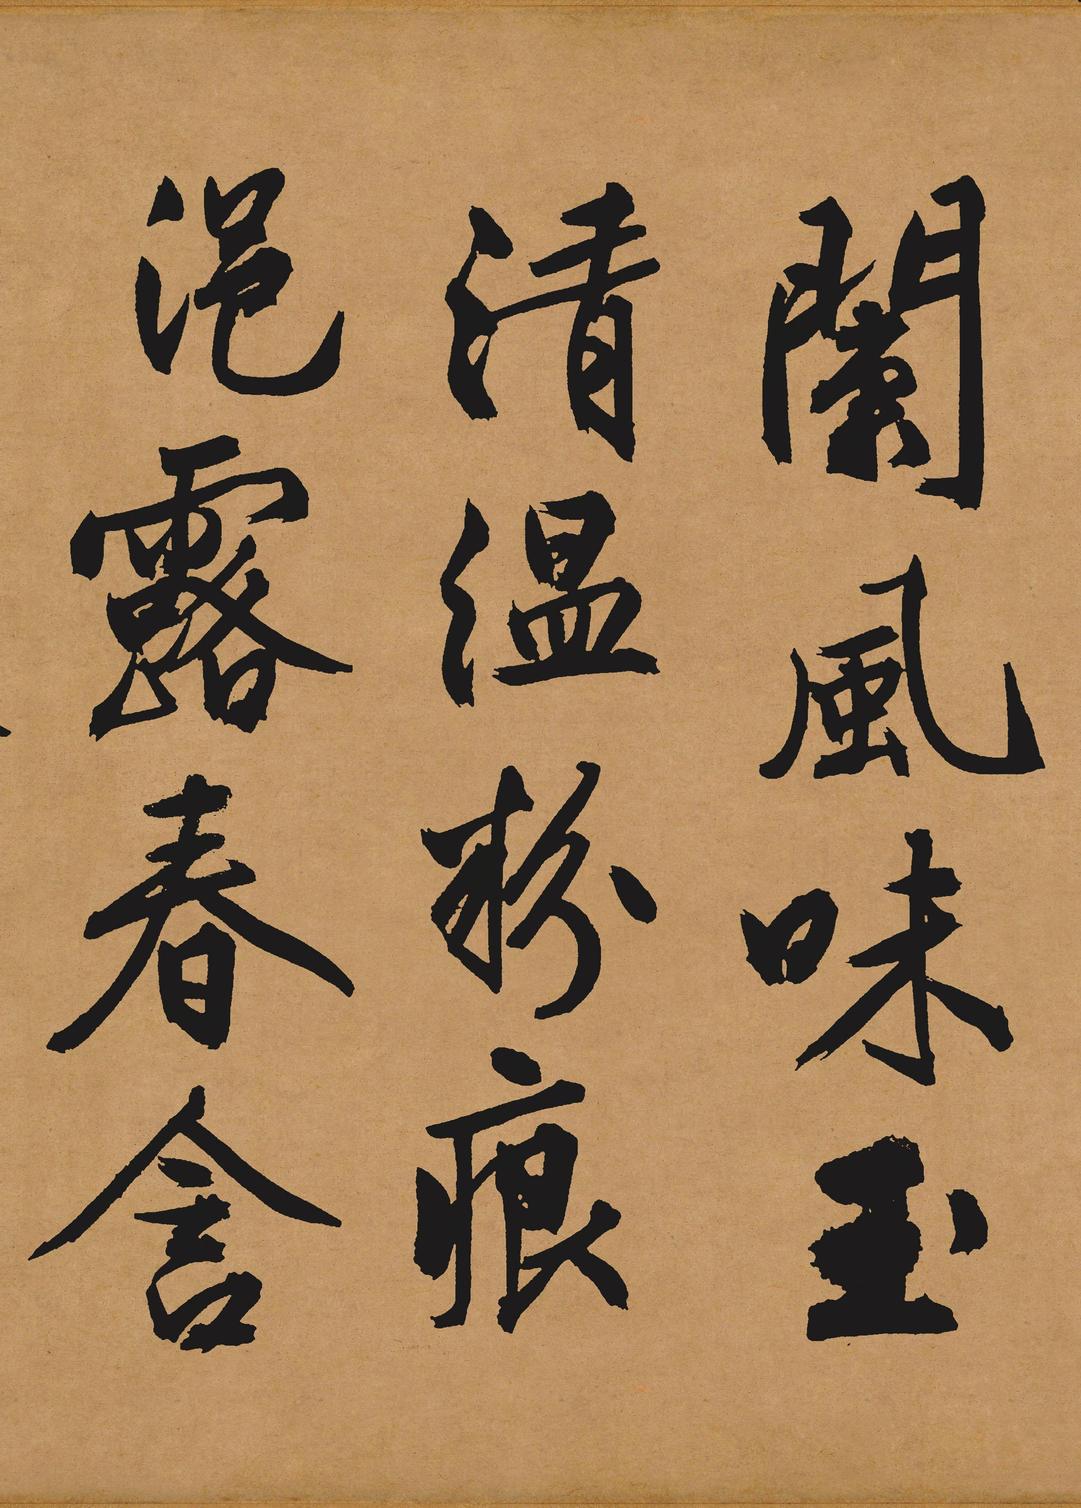 闌風味玉
清溫粉痕
浥露春含